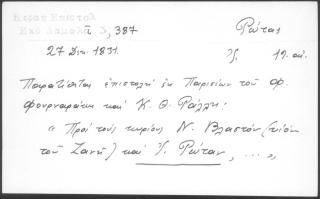 Κοραῆ Ἐπιστολ
Ἐκδ Δαμαλᾶ 3, 387
Ρώτας
27 Δεκ. 1831.
Ἰ. 19 αἰ.
Παρατίθεται ἐπιστολὴ ἐκ Παρισίων τοῦ Φ.
Φουρναράκη καὶ Κ. Θ. Ράλλη.
"Πρὸς τοὺς κυρίους Ν. Βλαστὸν (υἱὸν
τοῦ Ζαννῆ) καὶ Ἰ. Ρώταν, ...,